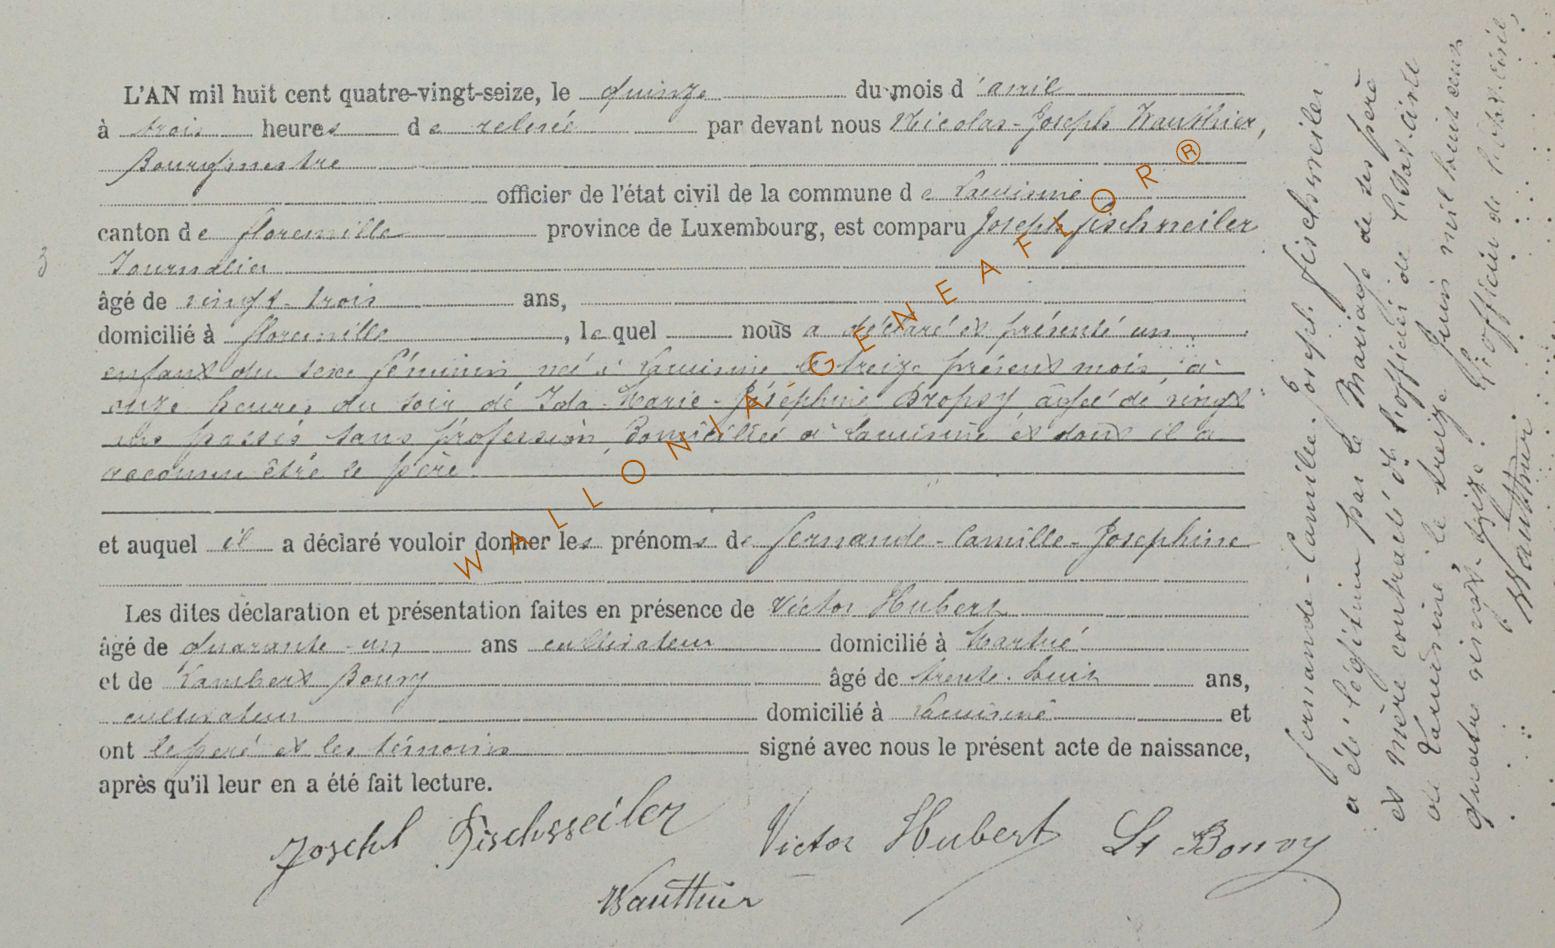 L'AN mil huit cent quatre-vingt-seize, le quinze du mois d'avril
à trois heures de relevée par devant nous Nicolas-Joseph Wauthier,
Bourgmestre
officier de l'état civil de la commune de Lacuisine
canton de florenville province de Luxembourg, est comparu Joseph fischweiler
Journalier
3
âgé de vingt-trois ans,
domicilié à florenville, lequel nous a déclaré et présenté un
enfant du sexe féminin, né à Lacuisine le treize présent mois à
onze heures du soir de Ida-Marie-Joséphine Dropsy âgée de vingt
ans passés sans profession, Domiciliée à Lacuisine et dont il a
reconnu être le père
et auquel il a déclaré vouloir donner les prénoms de fernande-Camille-Josephine
Les dites déclaration et présentation faites en présence de Victor Hubert
âgé de quarante-un ans cultivateur domicilié à Martué
et de Lambert Bouvy âgé de trente-huit ans,
cultivateur domicilié à Lacuisine et
ont le père et les témoins signé avec nous le présent acte de naissance,
après qu'il leur en a été fait lecture.
Joseph Fischweiler Victor Hubert Lt Bouvy
Wauthier
fernande-Camille-Joséph. fischweiler
a été légitimée par le Mariage de ses père
et mère contracté dt l'officier de l'état civil
de Lacuisine, le treize Juin mil huit cent
quatre vingt-seize. L'officier de l'état civil,
Wauthier
WALLONIA GENEAFLOR®